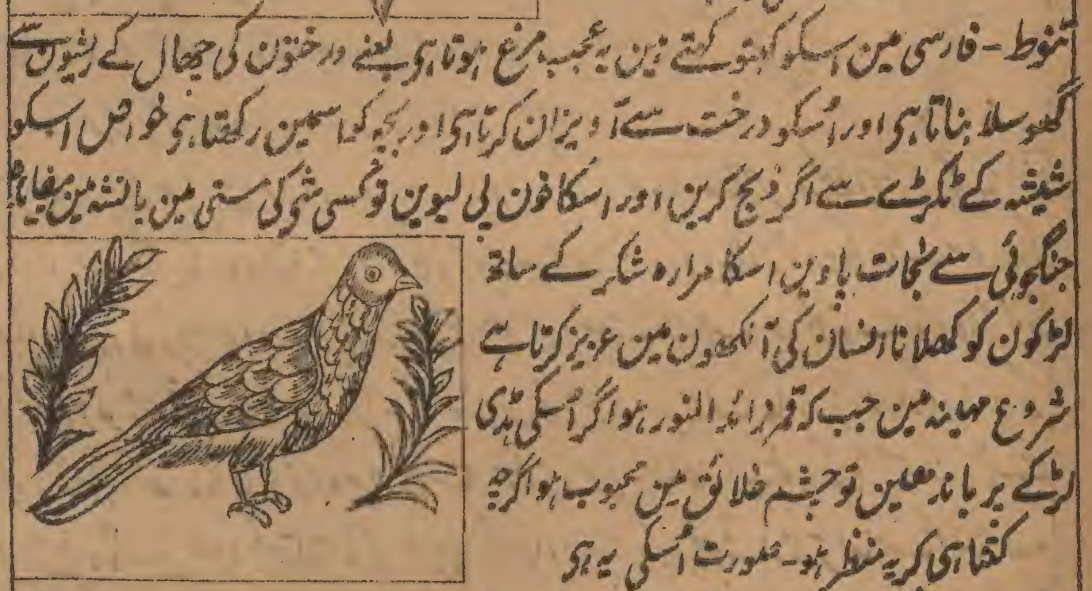 تنوط - فارسی مین اسکو کہتے ہین یہ عجب مرغ ہوتا ہی یعنے درختون کی چھال کے ریشون سے
گھوسلا بناتا ہی اور اُسکو درخت سے آویزان کرتا ہی اور بچہ کو اسمین رکھتا ہی خواص اسکو
شیشہ کے ٹکڑے سے اگر ذبح کرین اور اسکا خون پی لیوین تو کسی شی کی مستی مین یا نشہ مین
جنگجوئی سے نجات پاوین اسکا مرارہ شکر کے ساتھ
لڑکون کو کھلانا انسان کی آنکھون مین عزیز کرتا ہے
شروع مہینہ مین جب کہ قمر زائد النور ہو اگر اُسکی ہڈی
لڑکے پر باندھین تو چشم خلائق مین محبوب ہو اگرچہ
کتنا ہی کریہ منظر ہو - صورت اُسکی یہ ہی